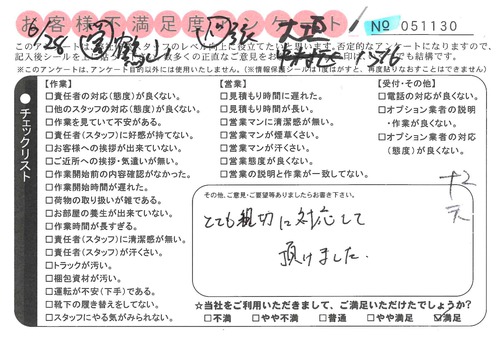 お客様不満足度アンケート
№ 051130
6/28
このアンケートは
のレベル向上に役立てたいと思います。否定的なアンケートになりますので、
記入後シールを
数多くの正直なご意見をお
でも結構です。
※このアンケートは、アンケート目的以外には使用いたしません。(※情報保護シールは1度はがすと、再度貼りなおすことはできません)
チェックリスト
【作業】
□責任者の対応(態度)が良くない。
□他のスタッフの対応(態度)が良くない。
□作業を見ていて不安がある。
□責任者(スタッフ)に好感が持てない。
□お客様への挨拶が出来ていない。
□ご近所への挨拶・気遣いが無い。
□作業開始前の内容確認がなかった。
□作業開始時間が遅れた。
□荷物の取り扱いが雑である。
□お部屋の養生が出来ていない。
□作業時間が長すぎる。
□責任者(スタッフ)に清潔感が無い。
□責任者(スタッフ)が汗臭い。
□トラックが汚い。
□梱包資材が汚い。
□運転が不安(下手)である。
□靴下の履き替えをしてない。
□スタッフにやる気がみられない。
【営業】
□見積もり時間に遅れた。
□見積もり時間が長い。
□営業マンに清潔感が無い。
□営業マンが煙草くさい。
□営業マンが汗くさい。
□営業態度が良くない。
□営業の説明と作業が一致してない。
【受付・その他】
□電話の対応が良くない。
□オプション業者の説明
・作業が良くない。
□オプション業者の対応
(態度)が良くない。
その他、ご意見・ご要望等ありましたらお書き下さい。
とても親切に対応して
頂けました.
☆当社をご利用いただきまして、ご満足いただけたでしょうか?
□不満 □やや不満 □普通 □やや満足 ☑満足